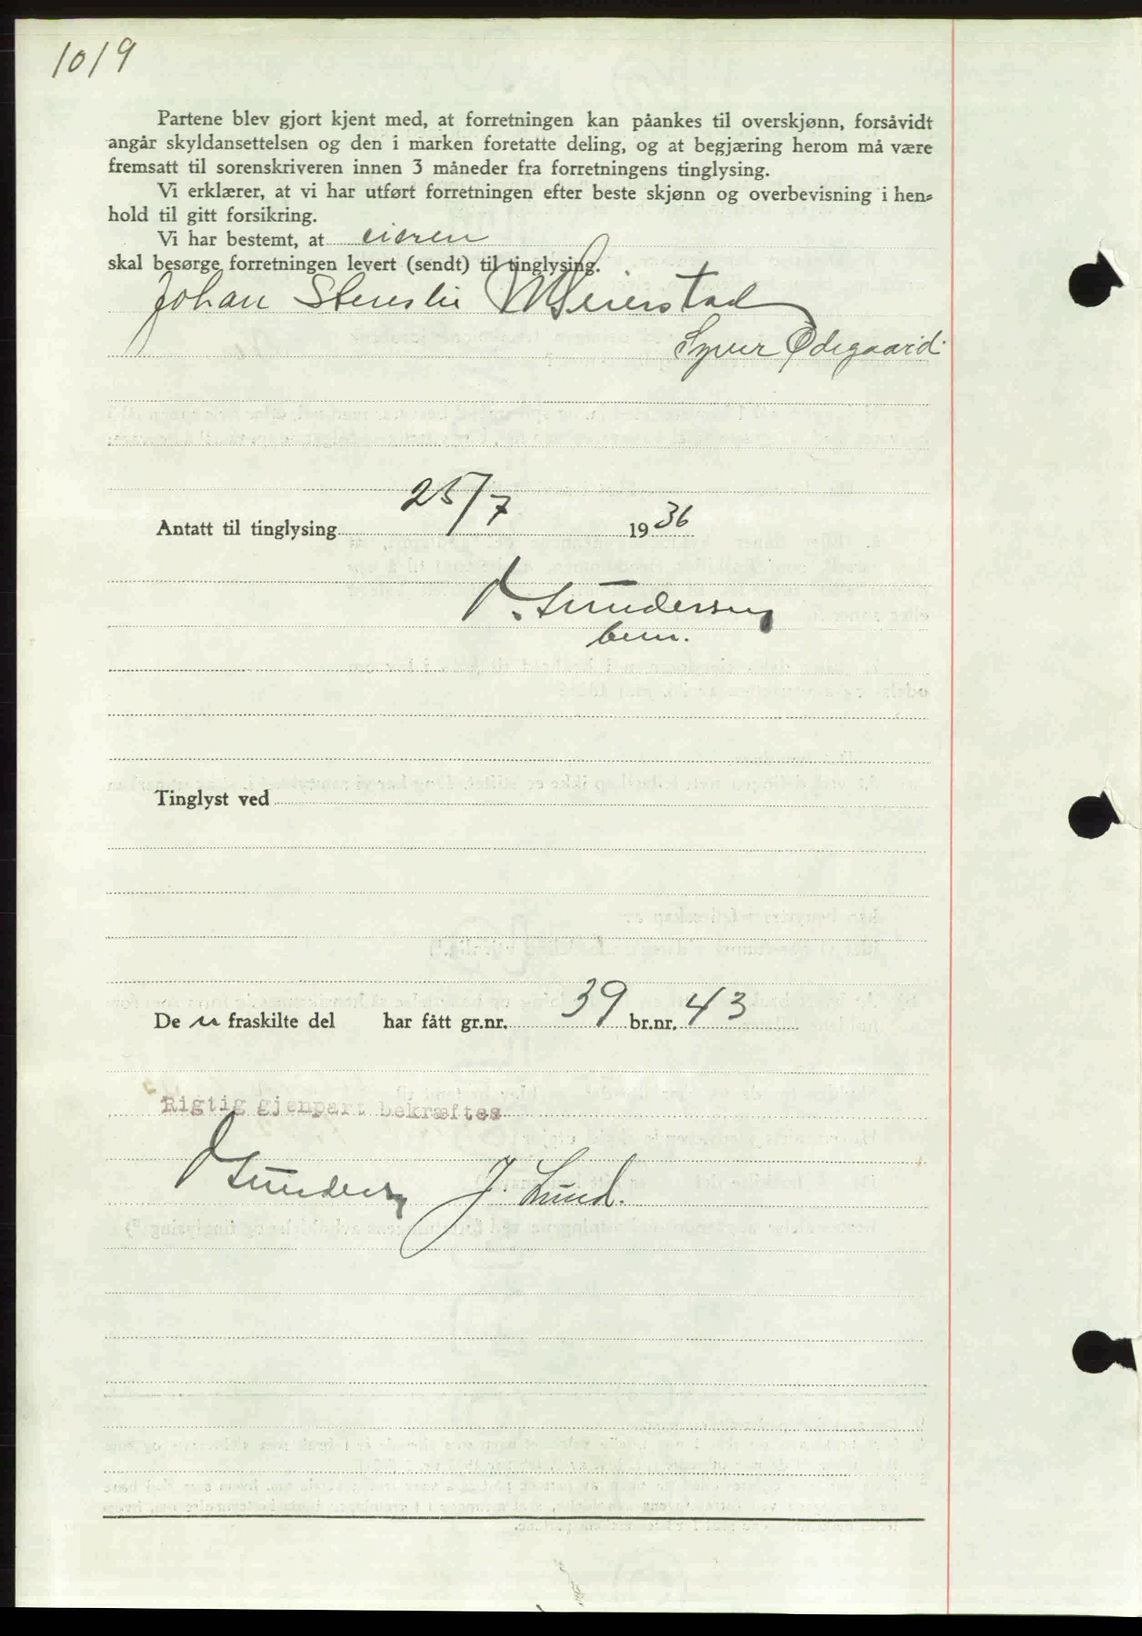 1019
Partene blev gjort kjent med, at forretningen kan påankes til overskjønn, forsåvidt
angår skyldansettelsen og den i marken foretatte deling, og at begjæring herom må være
fremsatt til sorenskriveren innen 3 måneder fra forretningens tinglysing.
Vi erklærer, at vi har utført forretningen efter beste skjønn og overbevisning i hen-
hold til gitt forsikring.
Vi har bestemt, at eieren
skal besørge forretningen levert (sendt) til tinglysing.
Johan Stenslie M Seierstad
Syver Ødegaard
Antatt til tinglysing 25/7 1936
Tinglyst ved
De n fraskilte del har fått gr.nr. 39 br.nr. 43
Rigtig gjenpart bekræftes
J. Lund.